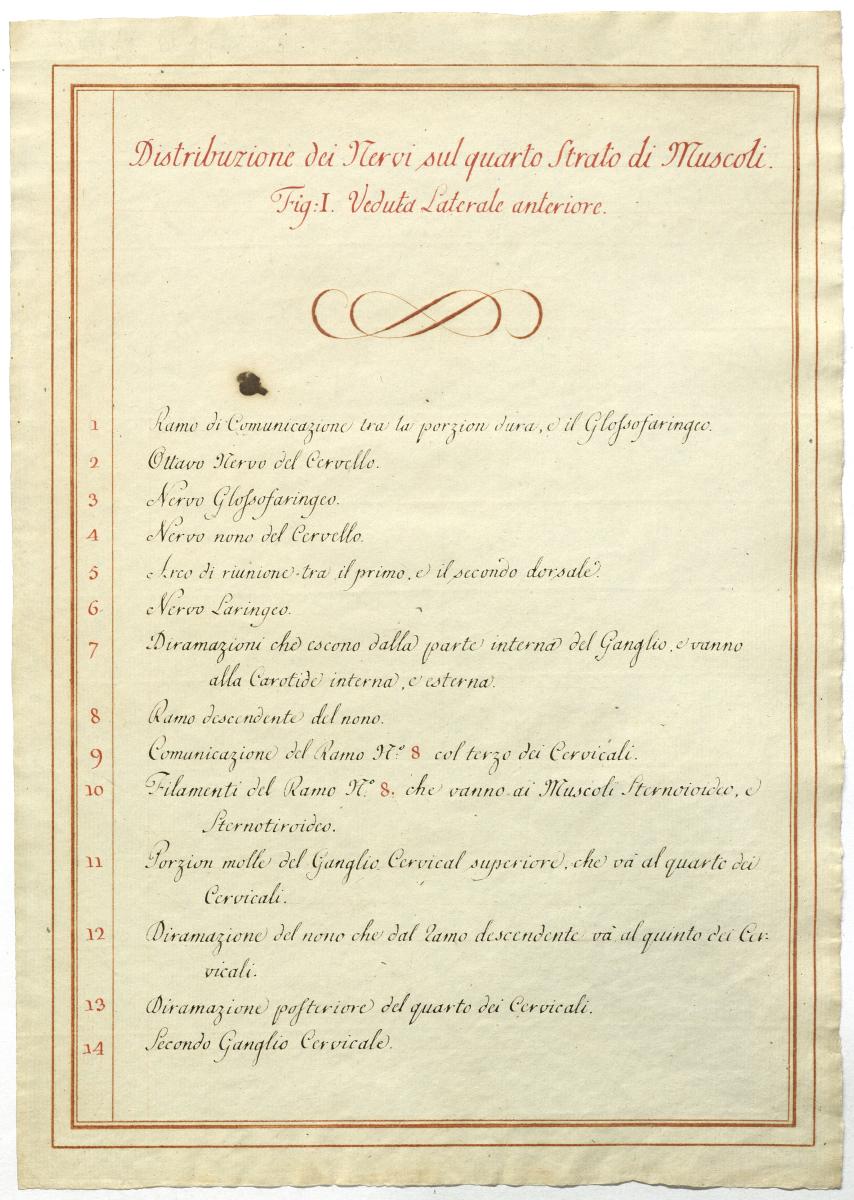 Distribuzione dei Nervi sul quarto Strato di Muscoli.
Fig: I. Veduta Laterale anteriore.
1 Ramo di Comunicazione tra la porzion dura, e il Gloſsofaringeo.
2 Ottavo Nervo del Cervello.
3 Nervo Gloſsofaringeo.
4 Nervo nono del Cervello.
5 Arco di riunione tra il primo, e il secondo dorsale.
6 Nervo Laringeo.
7 Diramazioni che escono dalla parte interna del Ganglio, e vanno
alla Carotide interna, e esterna.
8 Ramo descendente del nono.
9 Comunicazione del Ramo N.º 8 col terzo dei Cervicali.
10 Filamenti del Ramo N.º 8. che vanno ai Muscoli Sternoioideo, e
Sternotiroideo.
11 Porzion molle del Ganglio Cervical superiore, che và al quarto dei
Cervicali.
12 Diramazione del nono che dal ramo descendente và al quinto dei Cer-
vicali.
13 Diramazione poſteriore del quarto dei Cervicali.
14 Secondo Ganglio Cervicale.